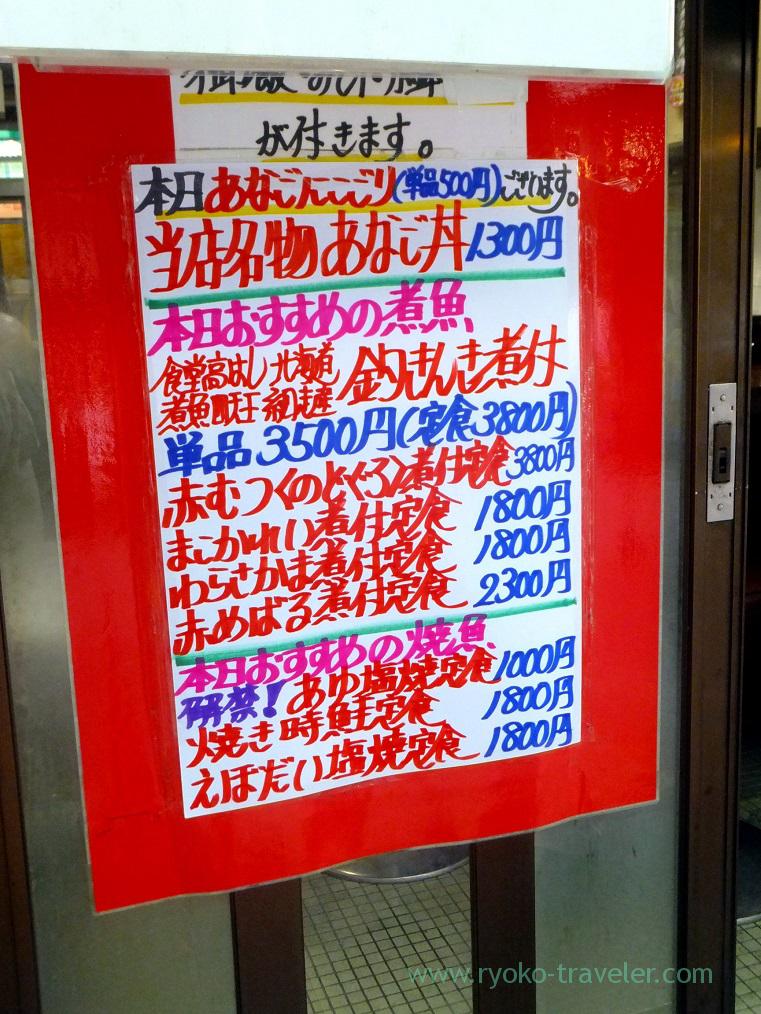 が付きます。
本日あなごにこごり(単品500円)ございます。
当店名物 あなご丼 1300円
本日おすすめの煮魚
食堂高はし 北海道 釣きんき煮付
煮魚四天王 網走産
単品 3500円(定食3800円)
赤むつ(のどぐろ)煮付定食 3800円
まこがれい煮付定食 1800円
わらさかま煮付定食 1800円
赤めばる煮付定食 2300円
本日おすすめの焼魚
解禁!あゆ塩焼定食 1000円
焼き時鮭定食 1800円
えぼだい塩焼定食 1800円
www.ryoko-traveler.com